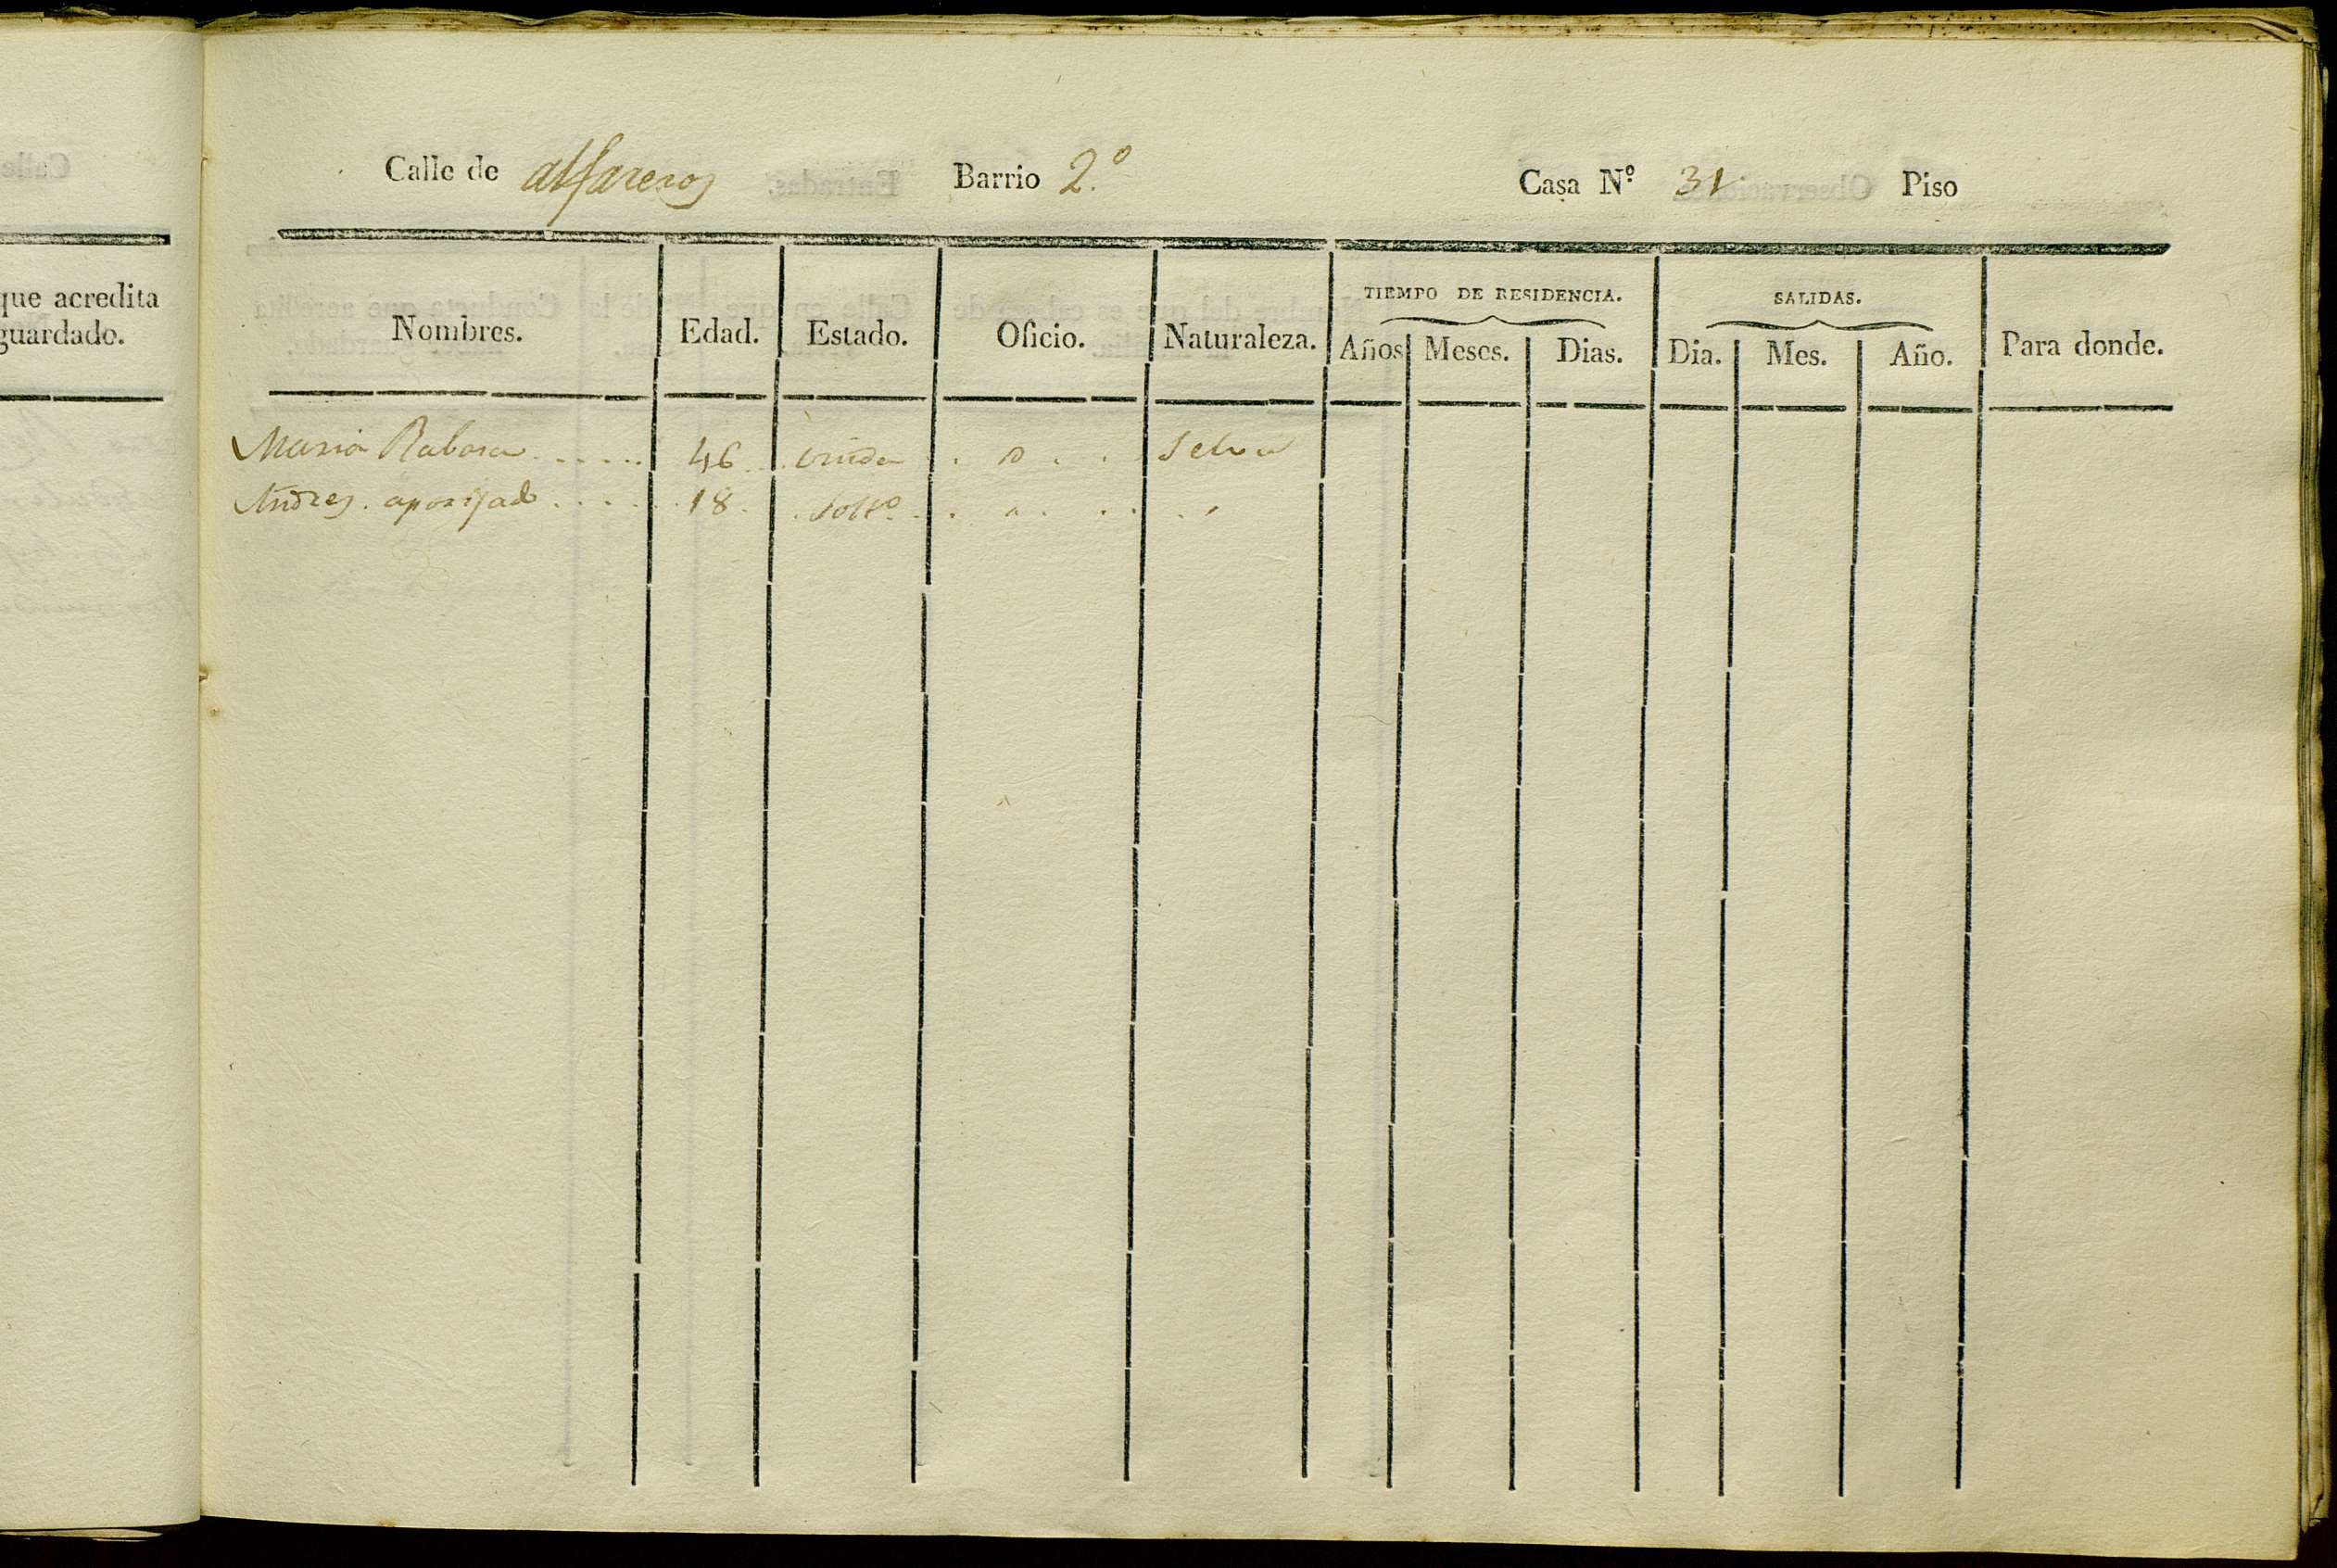 que acredita
guardado.
Calle de alfareros Barrio 2.º Casa Nº 31 Piso
TIEMPO DE RESIDENCIA. SALIDAS.
Nombres. Edad. Estado. Oficio. Naturaleza. Años Meses. Dias. Dia. Mes. Año. Para donde.
Maria Rabasa 46 viuda Selva
Andres 18 Solt.º